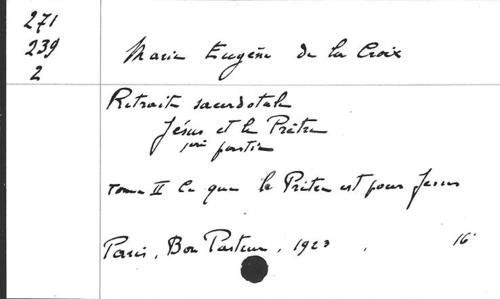 271
239
2
Marie Eugène de la Croix
Retraite sacerdotale
Jésus et le Prêtre
1ère partie
Tome II Ce que le Prêtre est pour Jésus
Paris, Bon Pasteur, 1923. 16